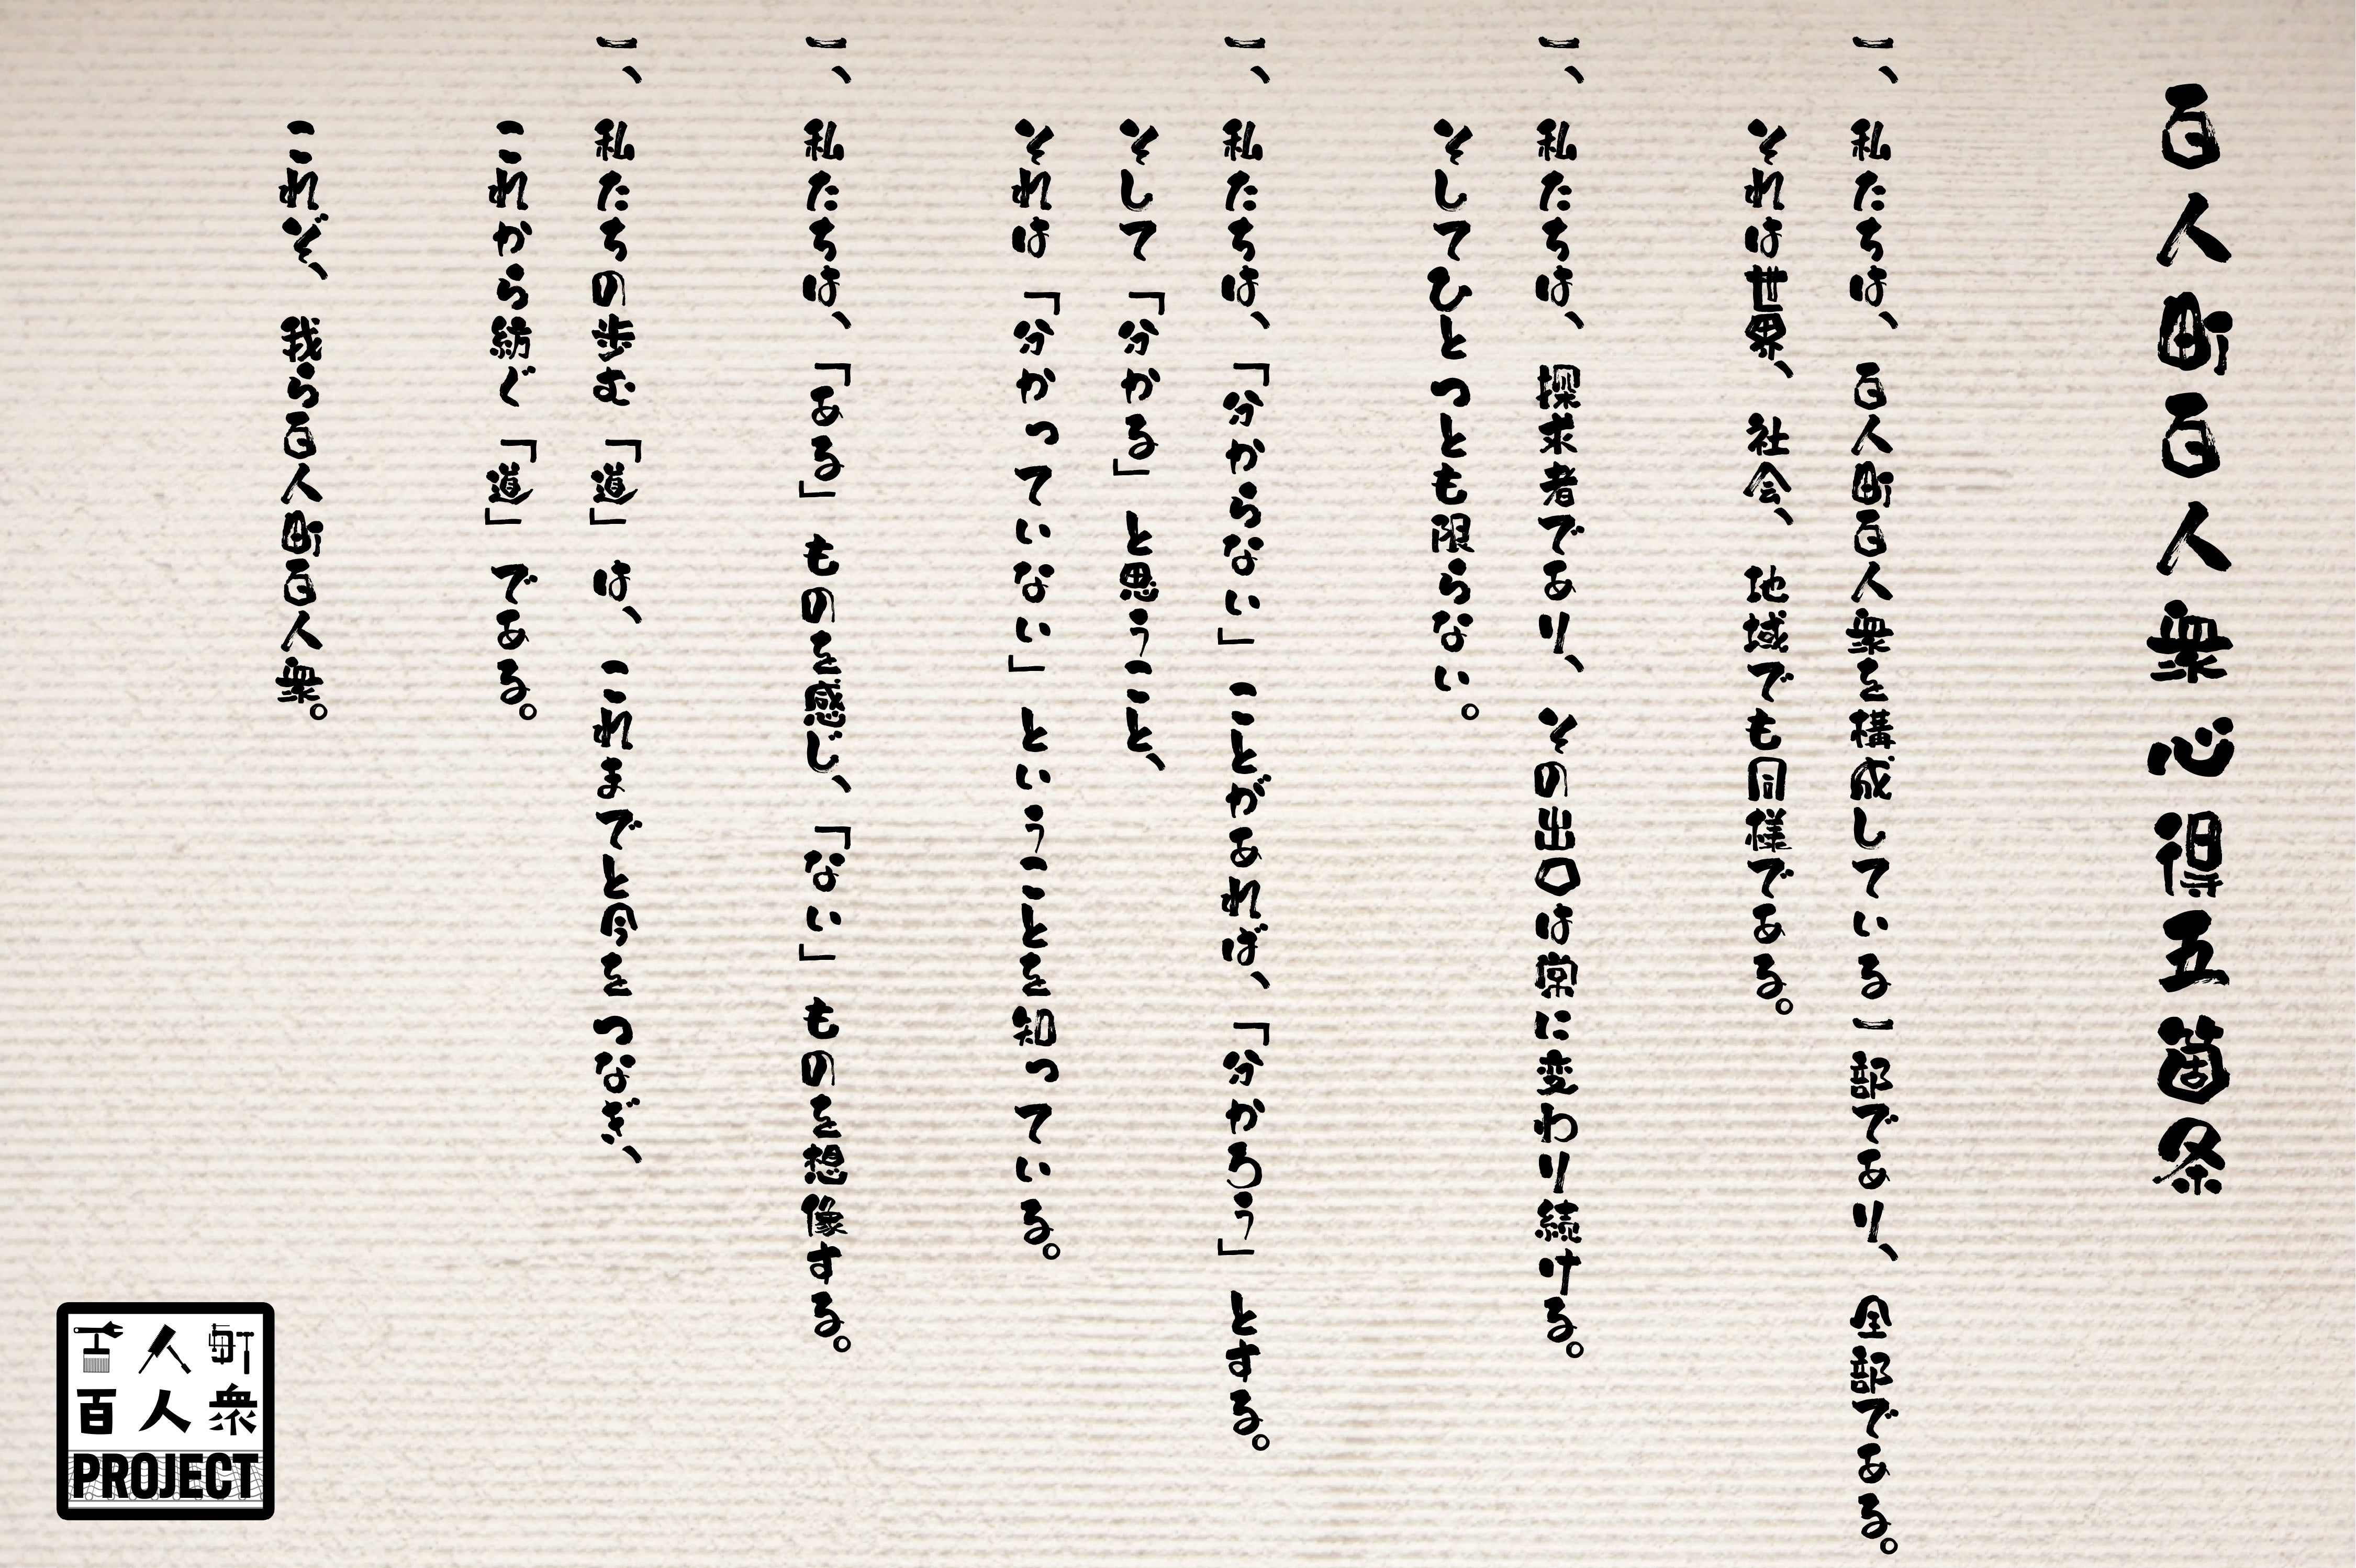 百人町百人衆 心得五箇条
一、私たちは、百人町百人衆を構成している一部であり、全部である。
それは世界、社会、地域でも同様である。
一、私たちは、探求者であり、その出口は常に変わり続ける。
そしてひとつとも限らない。
一、私たちは、「分からない」ことがあれば、「分かろう」とする。
そして「分かる」と思うこと、
それは「分かっていない」ということを知っている。
一、私たちは、「ある」ものを感じ、「ない」ものを想像する。
一、私たちの歩む「道」は、これまでと今をつなぎ、
これから紡ぐ「道」である。
これぞ、我ら百人町百人衆。
百人町
百人衆
PROJECT